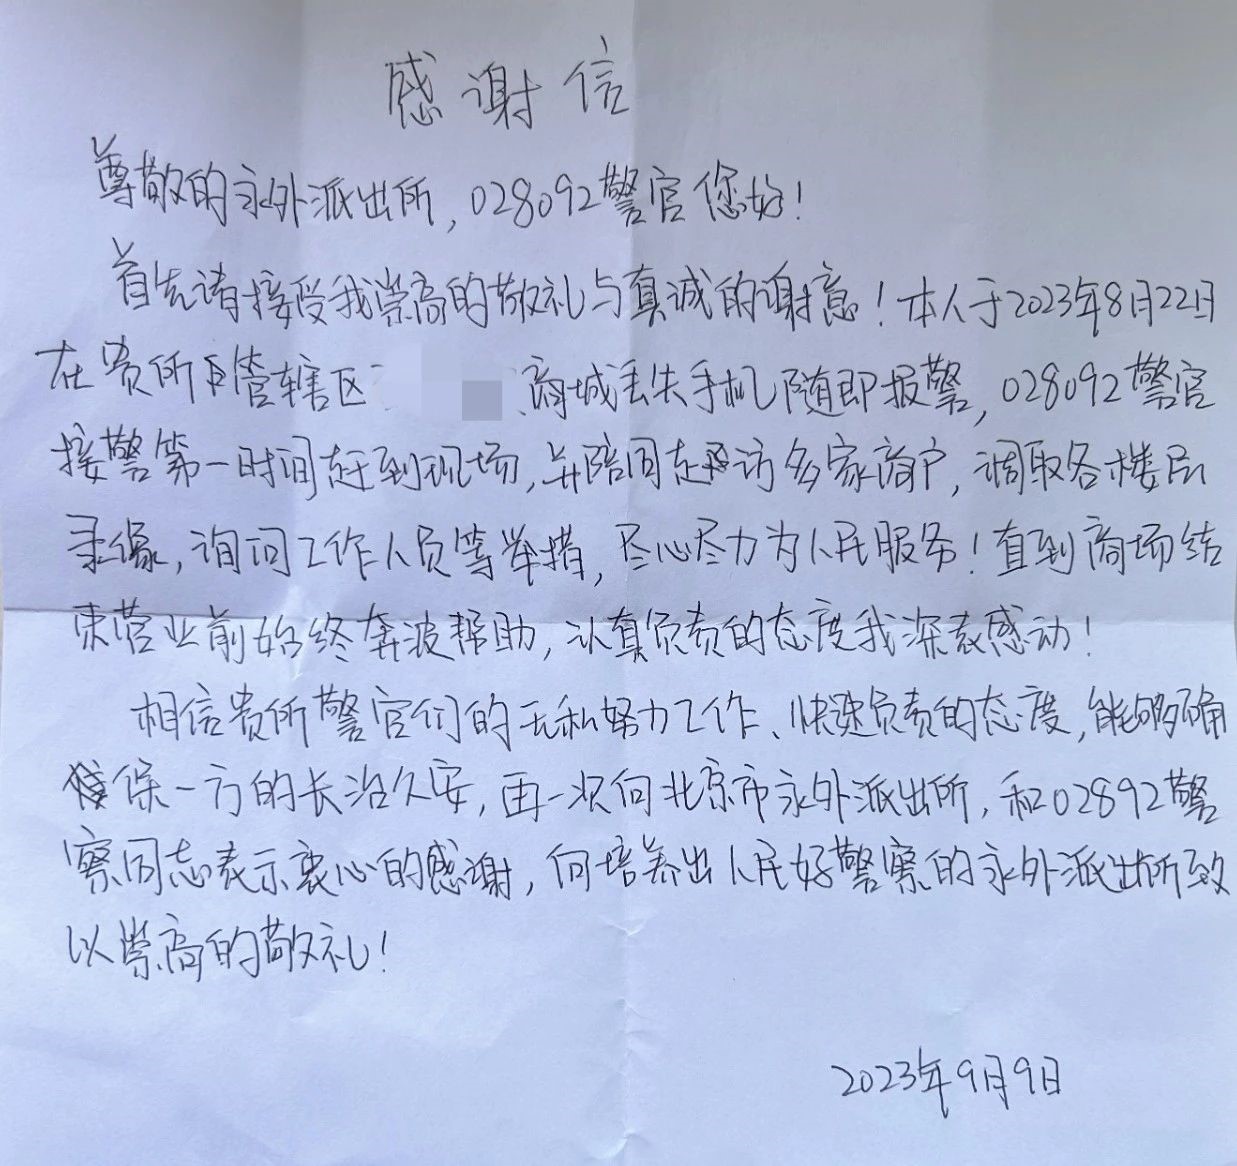 感谢信
尊敬的永外派出所，028092警官您好！
首先请接受我崇高的敬礼与真诚的谢意！本人于2023年8月22日
在贵所管辖区商城丢失手机随即报警，028092警官
接警第一时间赶到现场，并陪同走访多家商户，调取各楼层
录像，询问工作人员等举措，尽心尽力为人民服务！直到商场结
束营业前始终奔波帮助，认真负责的态度我深表感动！
相信贵所警官们的无私努力工作、快速负责的态度，能够确
保一方的长治久安，再一次向北京市永外派出所，和02892警
察同志表示衷心的感谢，向培养出人民好警察的永外派出所致
以崇高的敬礼！
2023年9月9日